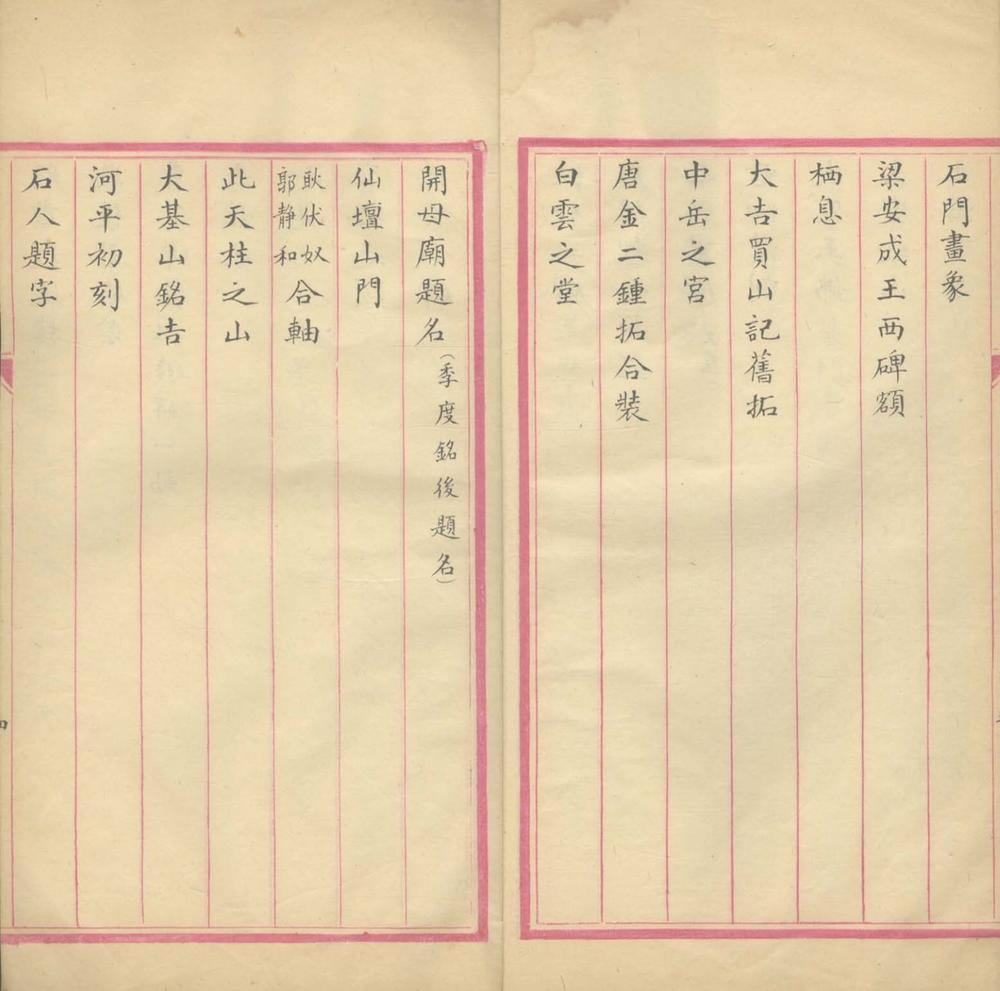 石門畫象
梁安成王西碑額
栖息
大吉買山記舊拓
中岳之宮
唐金二鍾拓合裝
白雲之堂
開母廟題名（季度銘後題名）
仙壇山門
耿伏奴
郭静和
合軸
此天柱之山
大基山銘告
河平初刻
石人題字
四